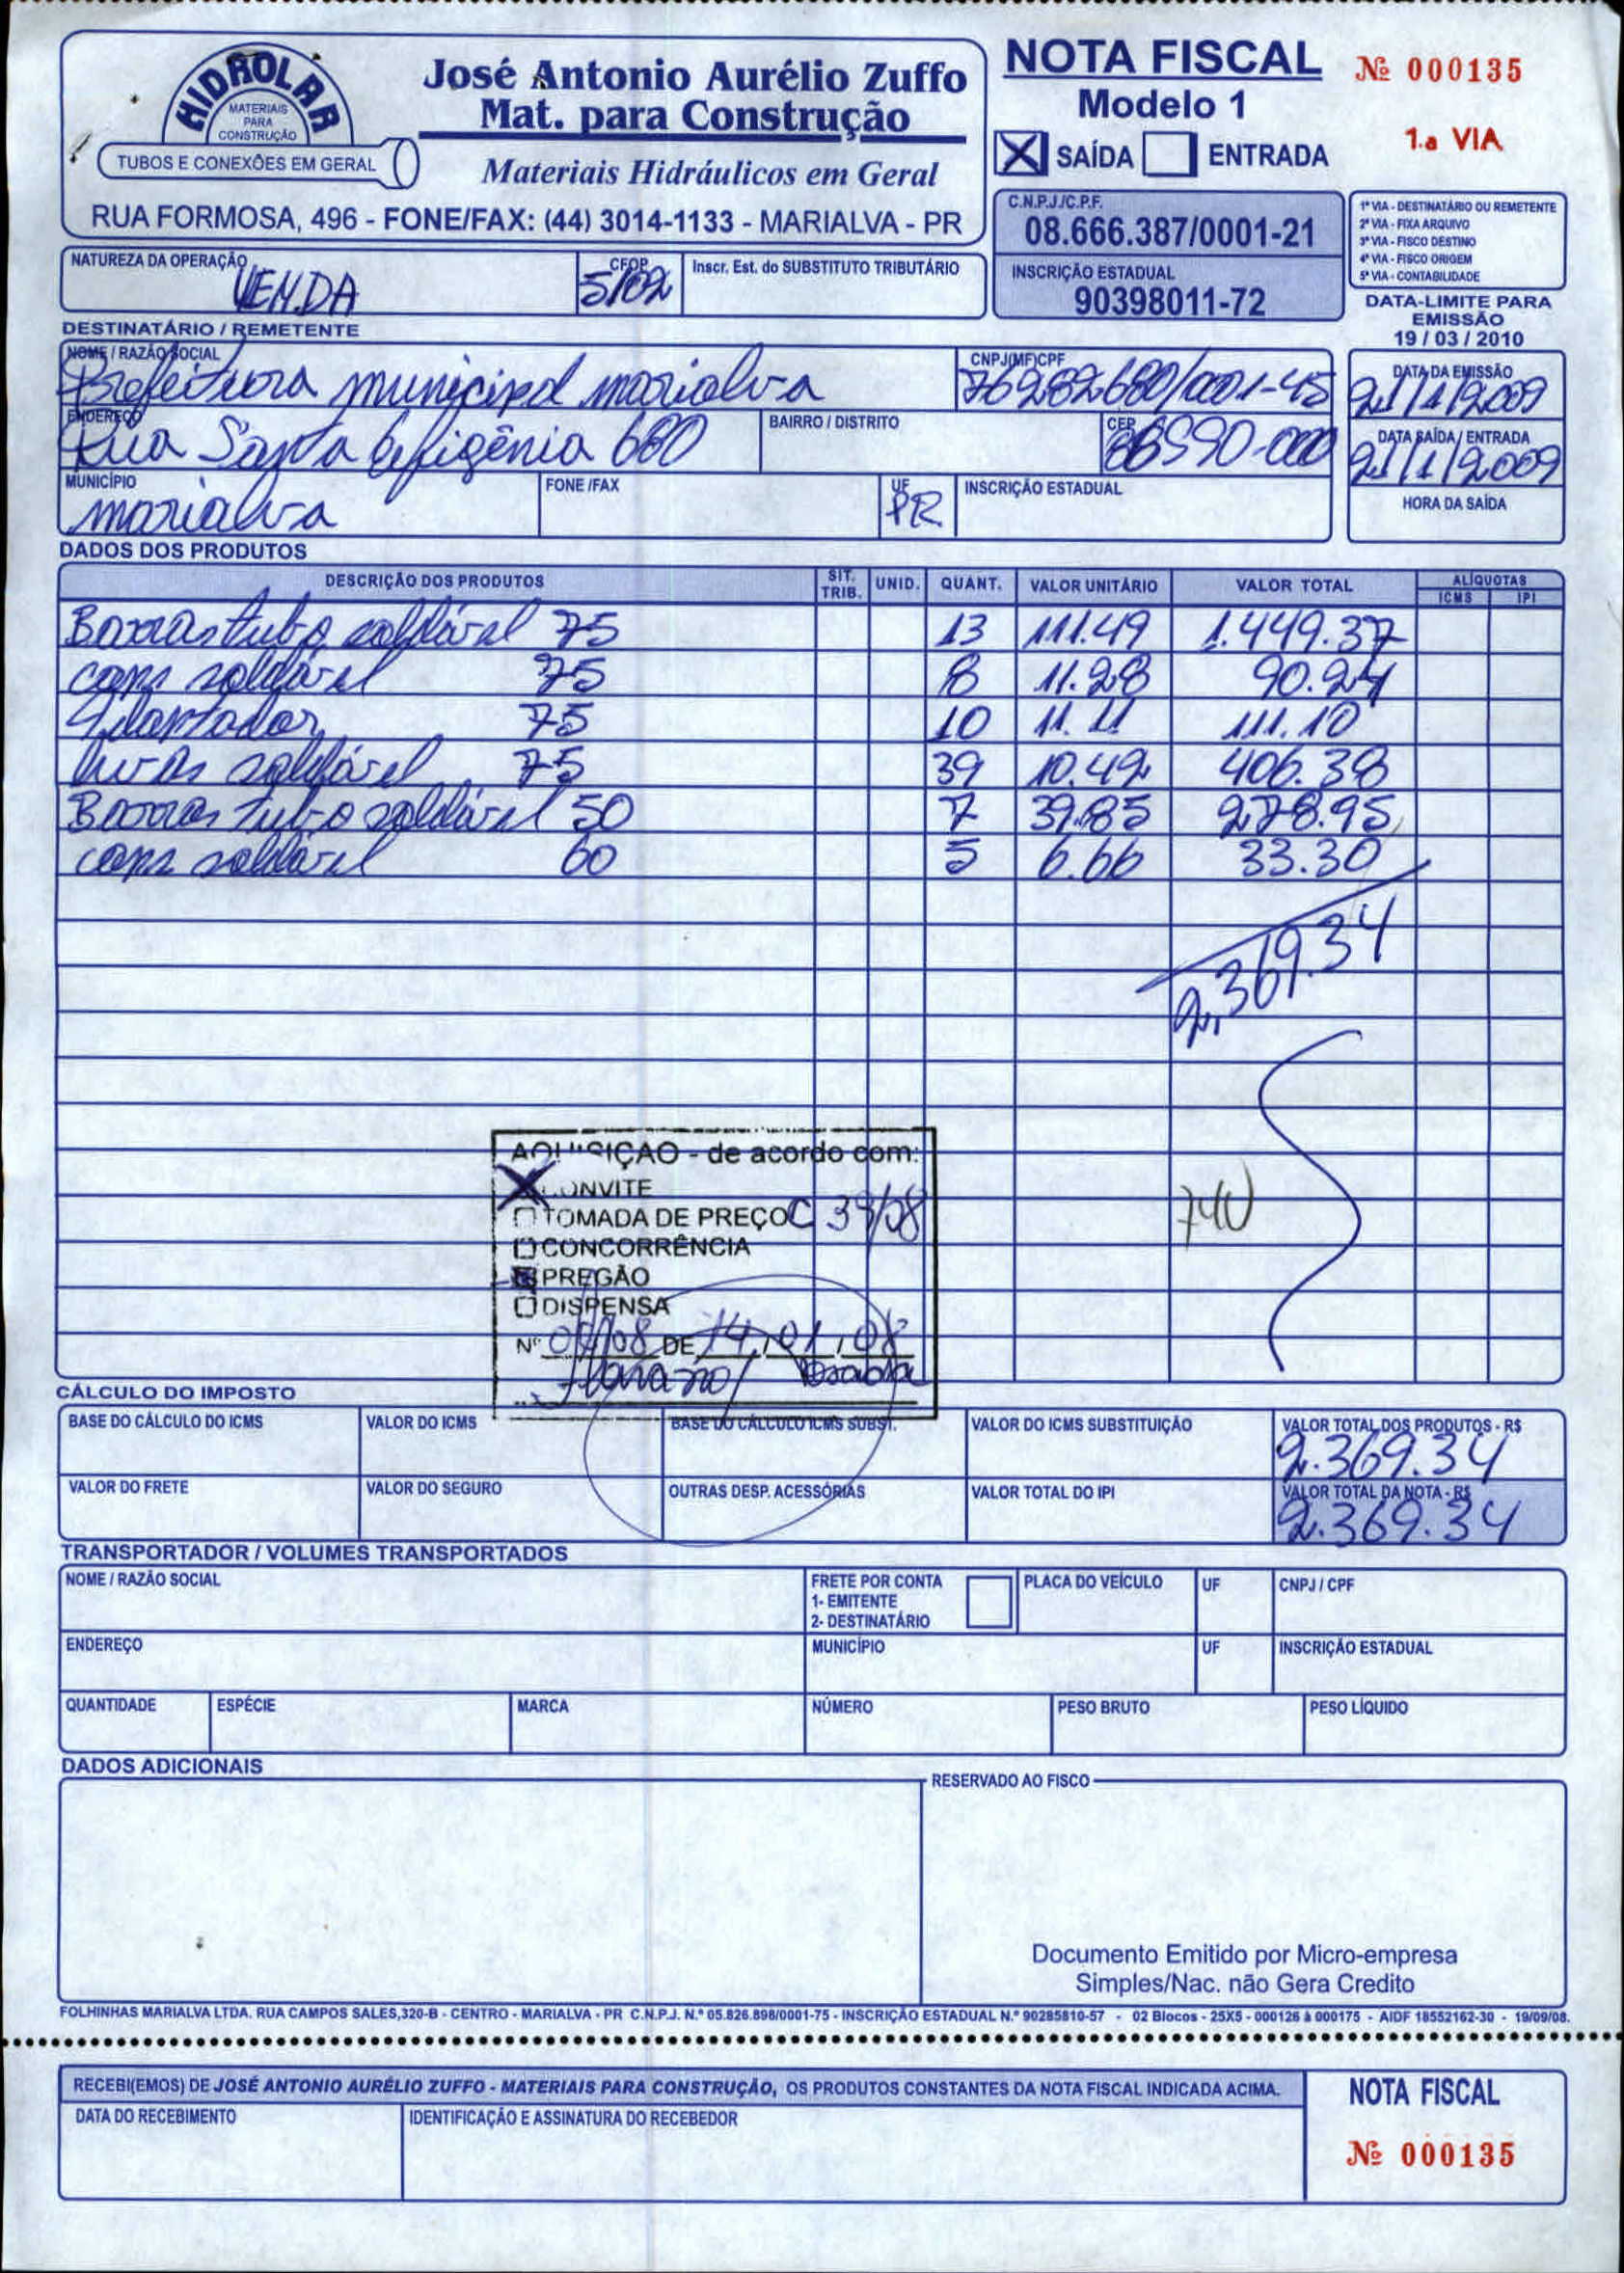 HIDROLAR
MATERIAIS
PARA
CONSTRUÇÃO
TUBOS E CONEXÕES EM GERAL
José Antonio Aurélio Zuffo
Mat. para Construção
Materiais Hidráulicos em Geral
RUA FORMOSA, 496 - FONE/FAX: (44) 3014-1133 - MARIALVA - PR
NOTA FISCAL
Nº 000135
Modelo 1
1.a VIA
X SAÍDA ENTRADA
C.N.P.J./C.P.F.
08.666.387/0001-21
INSCRIÇÃO ESTADUAL
90398011-72
1ª VIA - DESTINATÁRIO OU REMETENTE
2ª VIA - FIXA ARQUIVO
3ª VIA - FISCO DESTINO
4ª VIA - FISCO ORIGEM
5ª VIA - CONTABILIDADE
DATA-LIMITE PARA
EMISSÃO
19 / 03 / 2010
NATUREZA DA OPERAÇÃO
VENDA
CFOP
5102
Inscr. Est. do SUBSTITUTO TRIBUTÁRIO
DESTINATÁRIO / REMETENTE
NOME / RAZÃO SOCIAL
Prefeitura municipal marialva
CNPJ(MF)CPF
76282680/0001-45
DATA DA EMISSÃO
21/1/2009
ENDEREÇO
Rua Santa Efigênia 680
BAIRRO / DISTRITO
CEP
86990-000
DATA SAÍDA / ENTRADA
21/1/2009
MUNICÍPIO
marialva
FONE /FAX
UF
PR
INSCRIÇÃO ESTADUAL
HORA DA SAÍDA
DADOS DOS PRODUTOS
DESCRIÇÃO DOS PRODUTOS SIT. TRIB. UNID. QUANT. VALOR UNITÁRIO VALOR TOTAL ALÍQUOTAS ICMS IPI
Barras tubo soldável 75 13 111.49 1.449.37
caps soldável 75 8 11.28 90.24
Adaptador 75 10 11.11 111.10
luvas soldável 75 39 10.42 406.38
Barras tubo soldável 50 7 39.85 278.95
caps soldável 60 5 6.66 33.30
2.369.34
AQUISIÇÃO - de acordo com:
CONVITE
TOMADA DE PREÇO C 39/08
CONCORRÊNCIA
PREGÃO
DISPENSA
Nº DE 14/01/08
740
CÁLCULO DO IMPOSTO
BASE DO CÁLCULO DO ICMS
VALOR DO ICMS
BASE DO CÁLCULO ICMS SUBST.
VALOR DO ICMS SUBSTITUIÇÃO
VALOR TOTAL DOS PRODUTOS - R$
2.369.34
VALOR DO FRETE
VALOR DO SEGURO
OUTRAS DESP. ACESSÓRIAS
VALOR TOTAL DO IPI
VALOR TOTAL DA NOTA - R$
2.369.34
TRANSPORTADOR / VOLUMES TRANSPORTADOS
NOME / RAZÃO SOCIAL
FRETE POR CONTA
1- EMITENTE
2- DESTINATÁRIO
PLACA DO VEÍCULO
UF
CNPJ / CPF
ENDEREÇO
MUNICÍPIO
UF
INSCRIÇÃO ESTADUAL
QUANTIDADE
ESPÉCIE
MARCA
NÚMERO
PESO BRUTO
PESO LÍQUIDO
DADOS ADICIONAIS
RESERVADO AO FISCO
Documento Emitido por Micro-empresa
Simples/Nac. não Gera Credito
FOLHINHAS MARIALVA LTDA. RUA CAMPOS SALES,320-B - CENTRO - MARIALVA - PR C.N.P.J. N.º 05.826.898/0001-75 - INSCRIÇÃO ESTADUAL N.º 90285810-57 - 02 Blocos - 25X5 - 000126 à 000175 - AIDF 18552162-30 - 19/09/08.
RECEBI(EMOS) DE JOSÉ ANTONIO AURÉLIO ZUFFO - MATERIAIS PARA CONSTRUÇÃO, OS PRODUTOS CONSTANTES DA NOTA FISCAL INDICADA ACIMA.
DATA DO RECEBIMENTO
IDENTIFICAÇÃO E ASSINATURA DO RECEBEDOR
NOTA FISCAL
Nº 000135